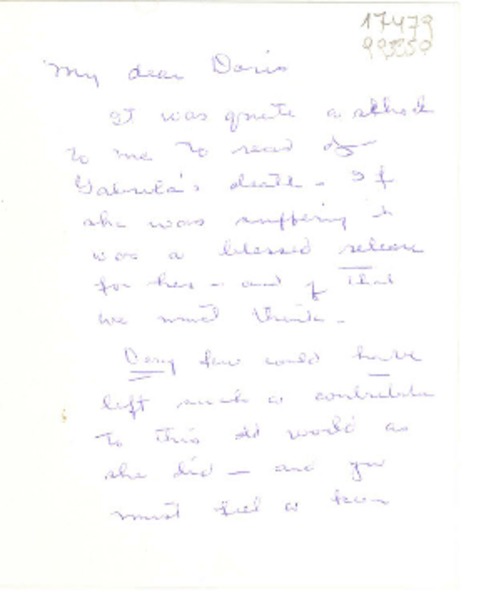 17479
993350
My dear Doris
It was quite a shock
to me to read of
Gabriela's death - If
she was suffering it
was a blessed release
for her - and of that
we must think -
few could have
left such a contribution
to this old world as
she did - and you
must feel a keen